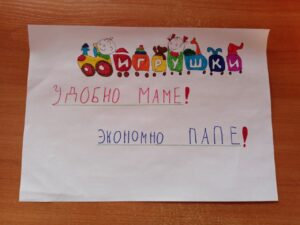 ИГРУШКИ
УДОБНО МАМЕ!
ЭКОНОМНО ПАПЕ!